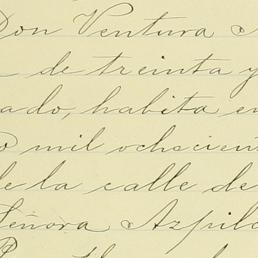 Don Ventura
de treinta y
ado, habita en
mil ochocient
de la calle de
Señora Azpilc